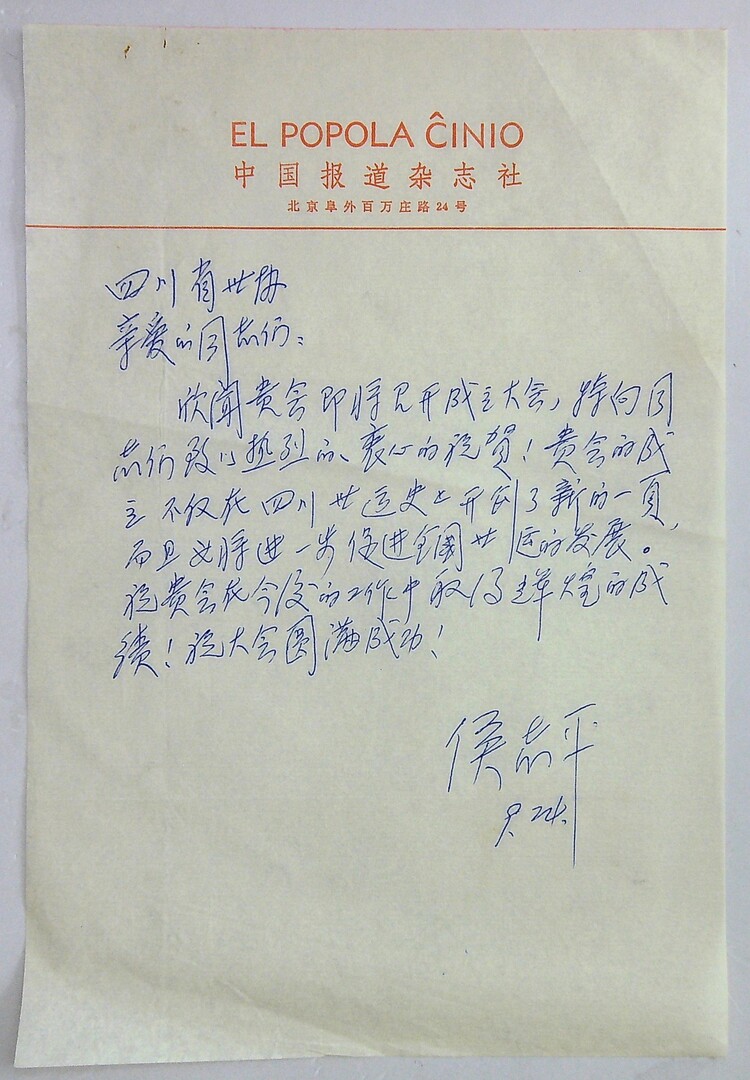 EL POPOLA ĈINIO
中国报道杂志社
北京阜外百万庄路24号
四川省世协
亲爱的同志们:
欣闻贵会即将召开成立大会,特向同
志们致以热烈的、衷心的祝贺!贵会的成
立不仅在四川世运史上开创了新的一頁,
而且必将进一步促进全国世运的发展。
祝贵会在今后的工作中取得辉煌的成
绩!祝大会圆满成功!
侯志平